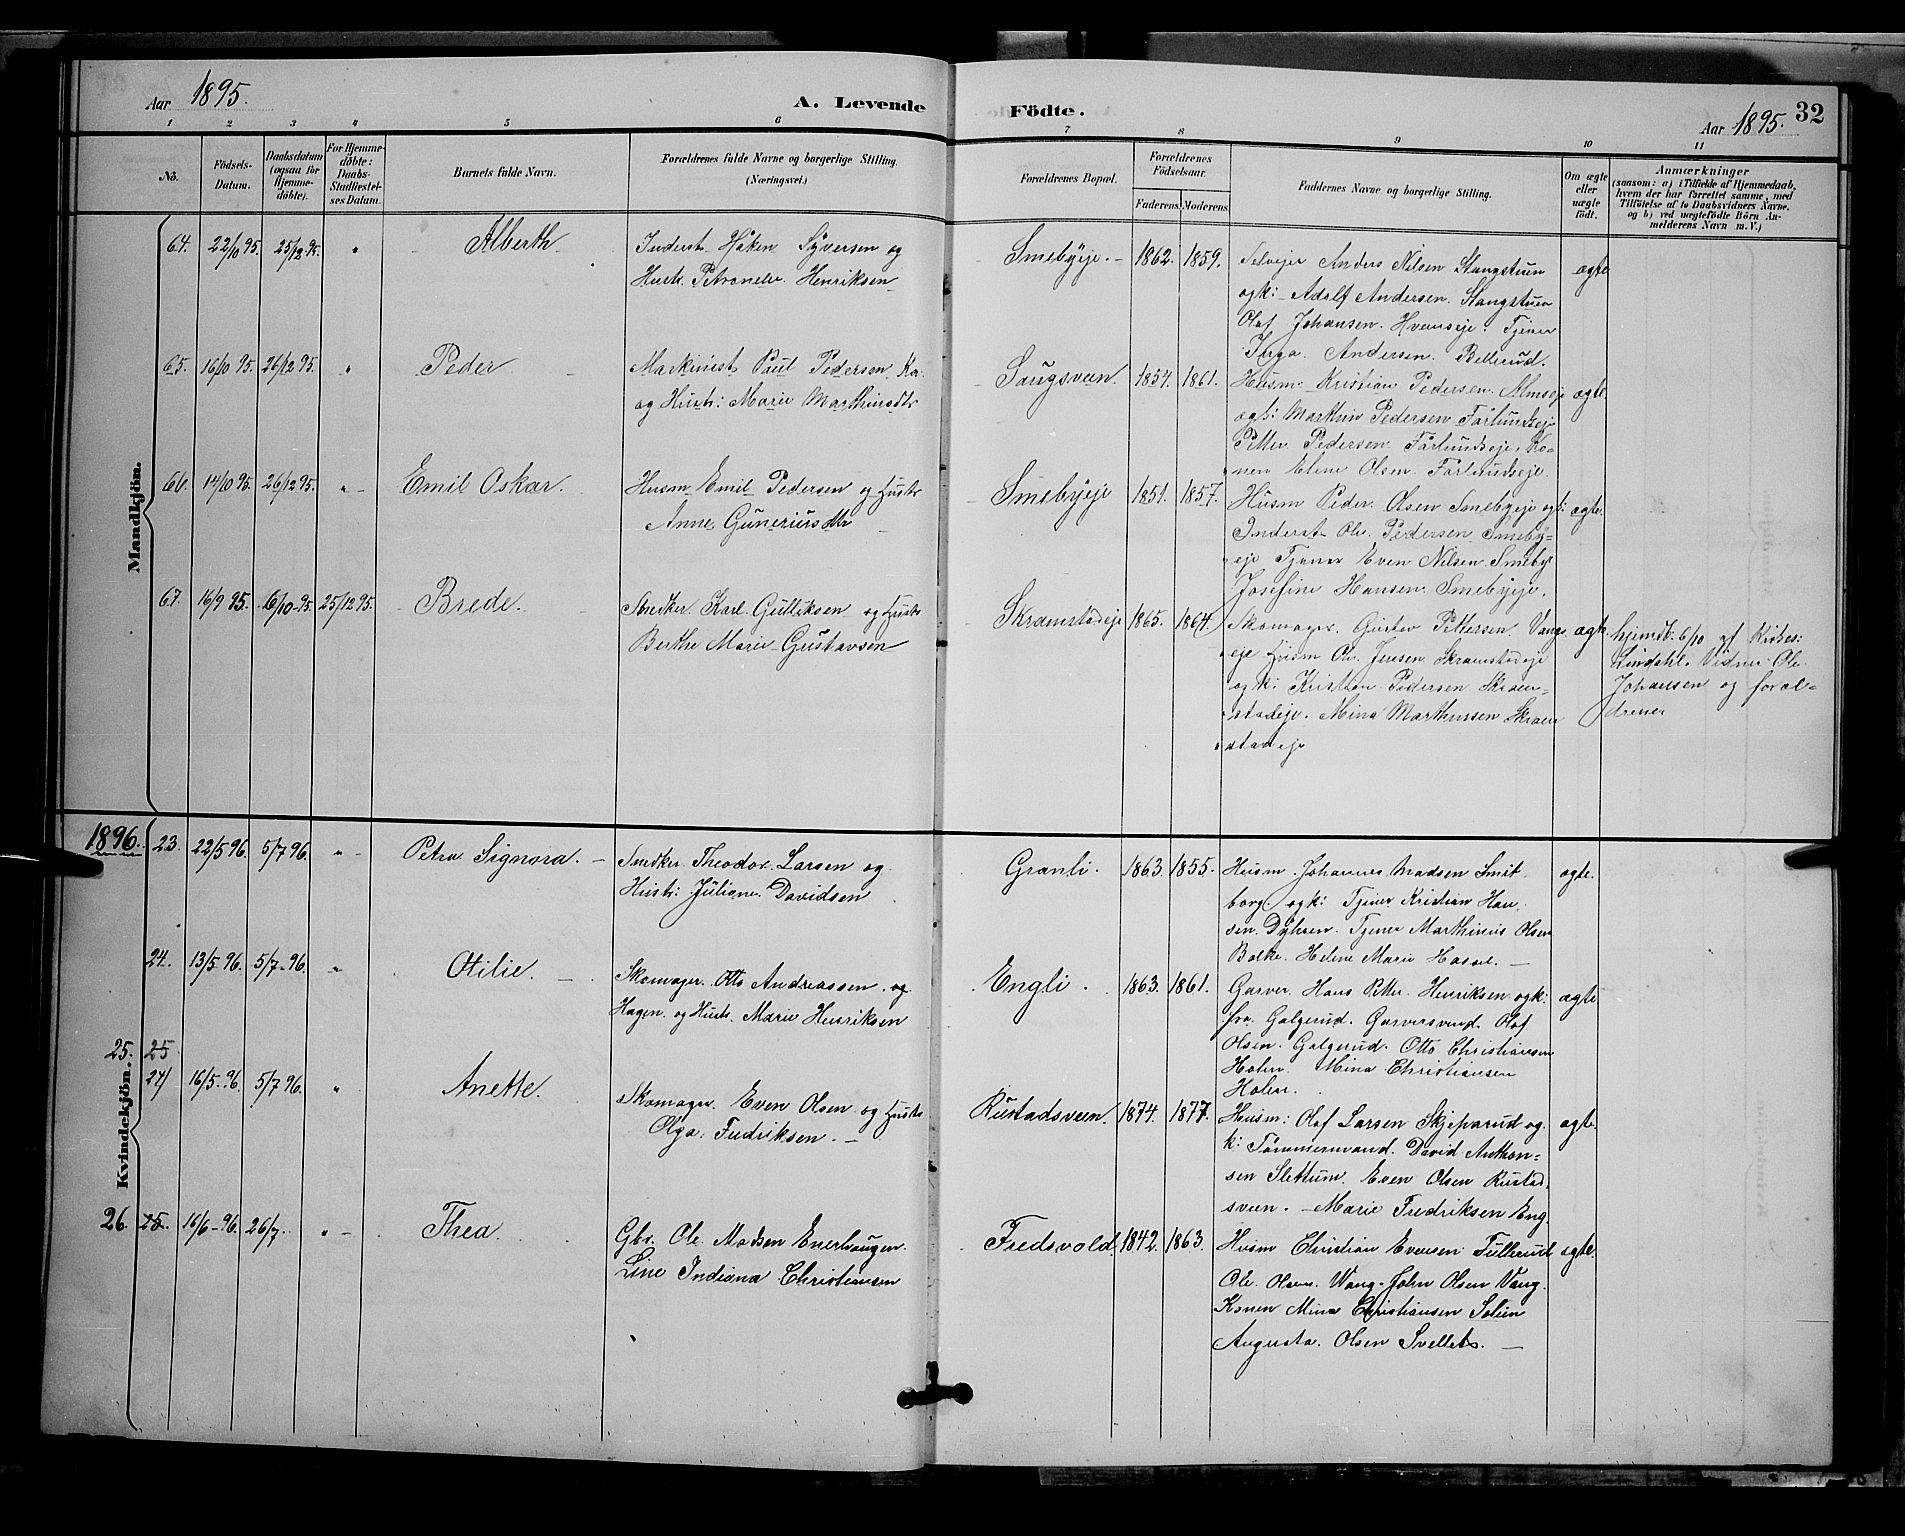 Aar 1895.
A. Levende
Födte.
Aar 1895.
32
1 2 3 4 5 6 7 8 9 10 11
No.
Födsels-
Datum.
Daabsdatum
(ogsaa for
Hjemme-
döbte).
For Hjemme-
döbte:
Daabs-
Stadfæstel-
ses Datum.
Barnets fulde Navn.
Forældrenes fulde Navne og borgerlige Stilling.
(Næringsvei.)
Forældrenes Bopæl.
Forældrenes
Födselsaar.
Faderens. Moderens.
Faddernes Navne og borgerlige Stilling.
Om ægte
eller
uægte
födt.
Anmærkninger
(saasom: a) i Tilfælde af Hjemmedaab,
hvem der har forrettet samme, med
Tilföielse af to Daabsvidners Navne.
og b) ved uægtefödte Börn An-
melderens Navn m. V.)
Mandkjön.
64. 22/10 95. 25/12 95. " Alberth
Inderst Håken Syversen og
Hustr. Petronele Henriksen
Smebyeje. 1862. 1859.
Selvejer Anders Nilsen Stangstuen
ogk: Adolf Andersen. Stangstuen
Olaf Johansen. Hvamseje. Tjener
Inga. Andersen. Bellerud.
ægte
65. 16/10 95. 26/12 95. " Peder
Maskinist Paul Pedersen
og Hustr: Marie Marthinsdtr
Saugsveen. 1854. 1861.
Husm. Kristian Pedersen. Almseje
ogk: Marthin Pedersen Fårlundseje
Petter Pedersen Fårlundseje. Ko-
nen Eline Olsen. Fårlundseje.
ægte.
66. 14/10 95. 26/12 95. " Emil Oskar.
Husm Emil Pedersen og Hustr
Anne Guneriusdtr
Smebyeje 1851. 1857.
Husm Peder Olsen Smebyeje ogk:
Inderst Ole Pedersen Smeby-
eje Tjener Even Nilsen. Smeby
Josefine Hansen. Smebyeje.
ægte.
67. 16/9 95. 6/10-95. 25/12 95. Brede.
Snedker Karl Gulliksen og Hustr
Berthe Marie Gustavsen
Skramstadeje 1865. 1864.
Skomager. Gustav Pettersen. Vangs
eje Husm Ole Jensen. Skramstadeje
ogk: Kristian Pedersen Skram-
stadeje. Mina Marthinssen Skram
stadeje
ægte.
hjemdb. 6/10 af Kirkes:
Lindahl. Vidner Ole
Johansen og foræl-
drene
1896.
Kvindekjön.
23. 22/5 96. 5/7 96. " Petra Signora.
Snedker Theodor Larsen og
Hustr: Juliane Davidsen
Granli. 1863. 1855.
Husm. Johannes Madsen Smit
borg. ogk: Tjener Kristian Han
sen. Dyhren. Tjener Marthinius Olsen
Balke. Helene Marie Hassel.
ægte.
24. 13/5 96. 5/7-96. " Otilie.
Skomager. Otto Andreassen. og
Hagen. og Hustr. Marie Henriksen
Engli. 1863. 1861.
Garver. Hans Petter Henriksen. ogk:
fra Galgerud. Garversvend. Olaf
Olsen. Galgerud. Otto Christiansen
Holen. Mina Christiansen
Holen.
ægte
25. 25
24/ 16/5-96. 5/7 96. " Anette.
Skomager. Even Olsen og Hustr
Olga Fredriksen.
Rustadsveen. 1874. 1877.
Husm: Olaf Larsen Skjeparud og
k: Tømmermand. David Anthon-
sen Slettum. Even Olsen Rustad
sveen. Marie Fredriksen Eng.
ægte.
26. 25. 16/6-96. 26/7. " Thea
Gbr. Ole Madsen Enerhaugen.
Line Indiana Christiansen
Fredsvold. 1842. 1863.
Husm Christian Evensen Tullerud
Ole Olsen. Wang. John Olsen Vang.
Konen Mina Christiansen Solien
Augusta. Olsen Svellets.
ægte.